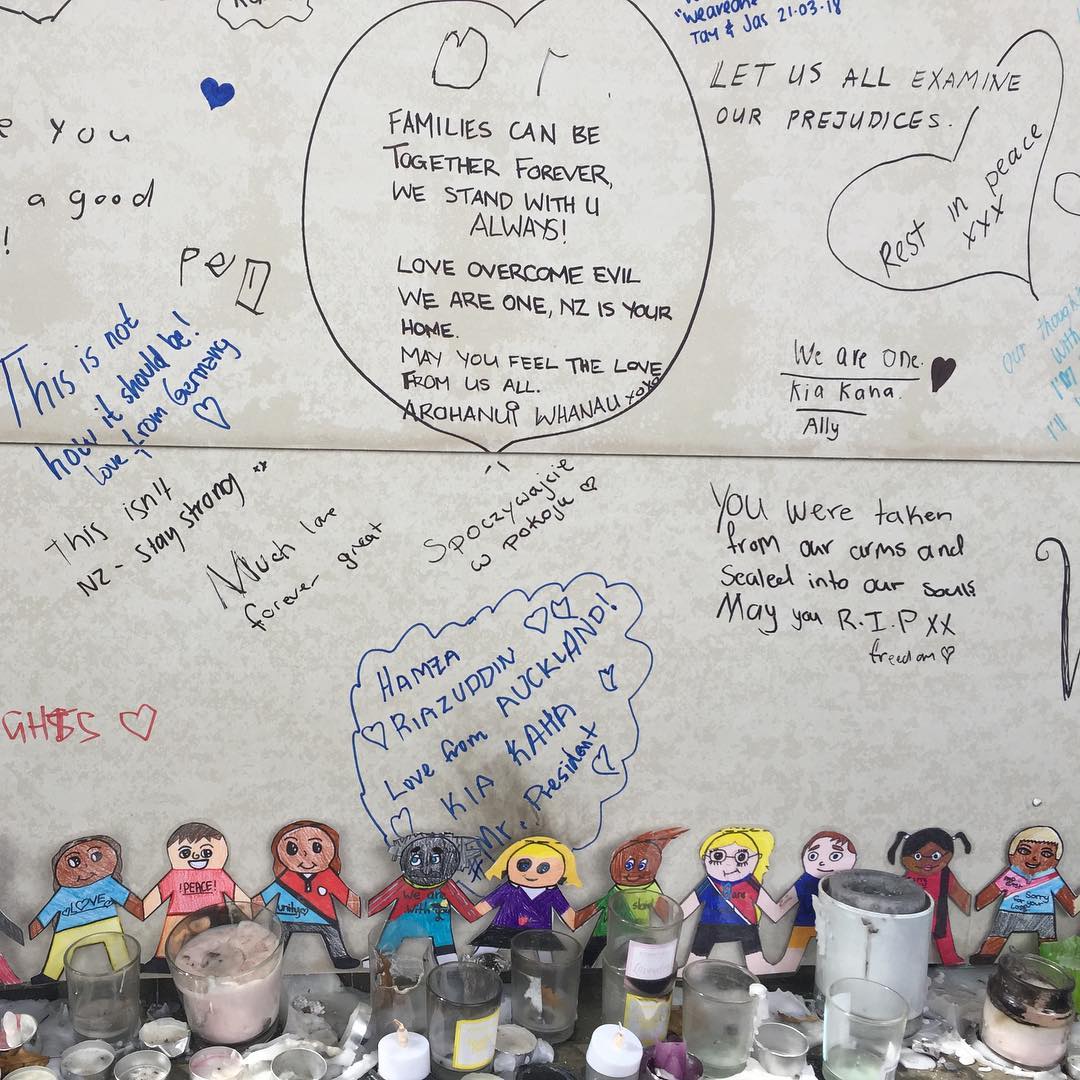 "weareone"
Tay & Jas 21.03.18
e you
a good
!
pen
FAMILIES CAN BE
TOGETHER FOREVER,
WE STAND WITH U
ALWAYS!
LOVE OVERCOME EVIL
WE ARE ONE, NZ IS YOUR
HOME.
MAY YOU FEEL THE LOVE
FROM US ALL.
AROHANUI WHANAU xoxo
LET US ALL EXAMINE
OUR PREJUDICES.
Rest in peace
xxx
This is not
how it should be!
love from Germany
We are one.
Kia Kana.
Ally
our though
with
I'm
I'll
This isn't
NZ - stay strong
Much love
forever great
Spoczywajcie
w pokoju
You were taken
from our arms and
Sealed into our souls
May you R.I.P XX
freedom
HAMZA
RIAZUDDIN
Love from AUCKLAND!
KIA KAHA
#Mr. President
GHSS
LOVE
!PEACE!
unity
We are
With you
are
Sorry
for your
Loss